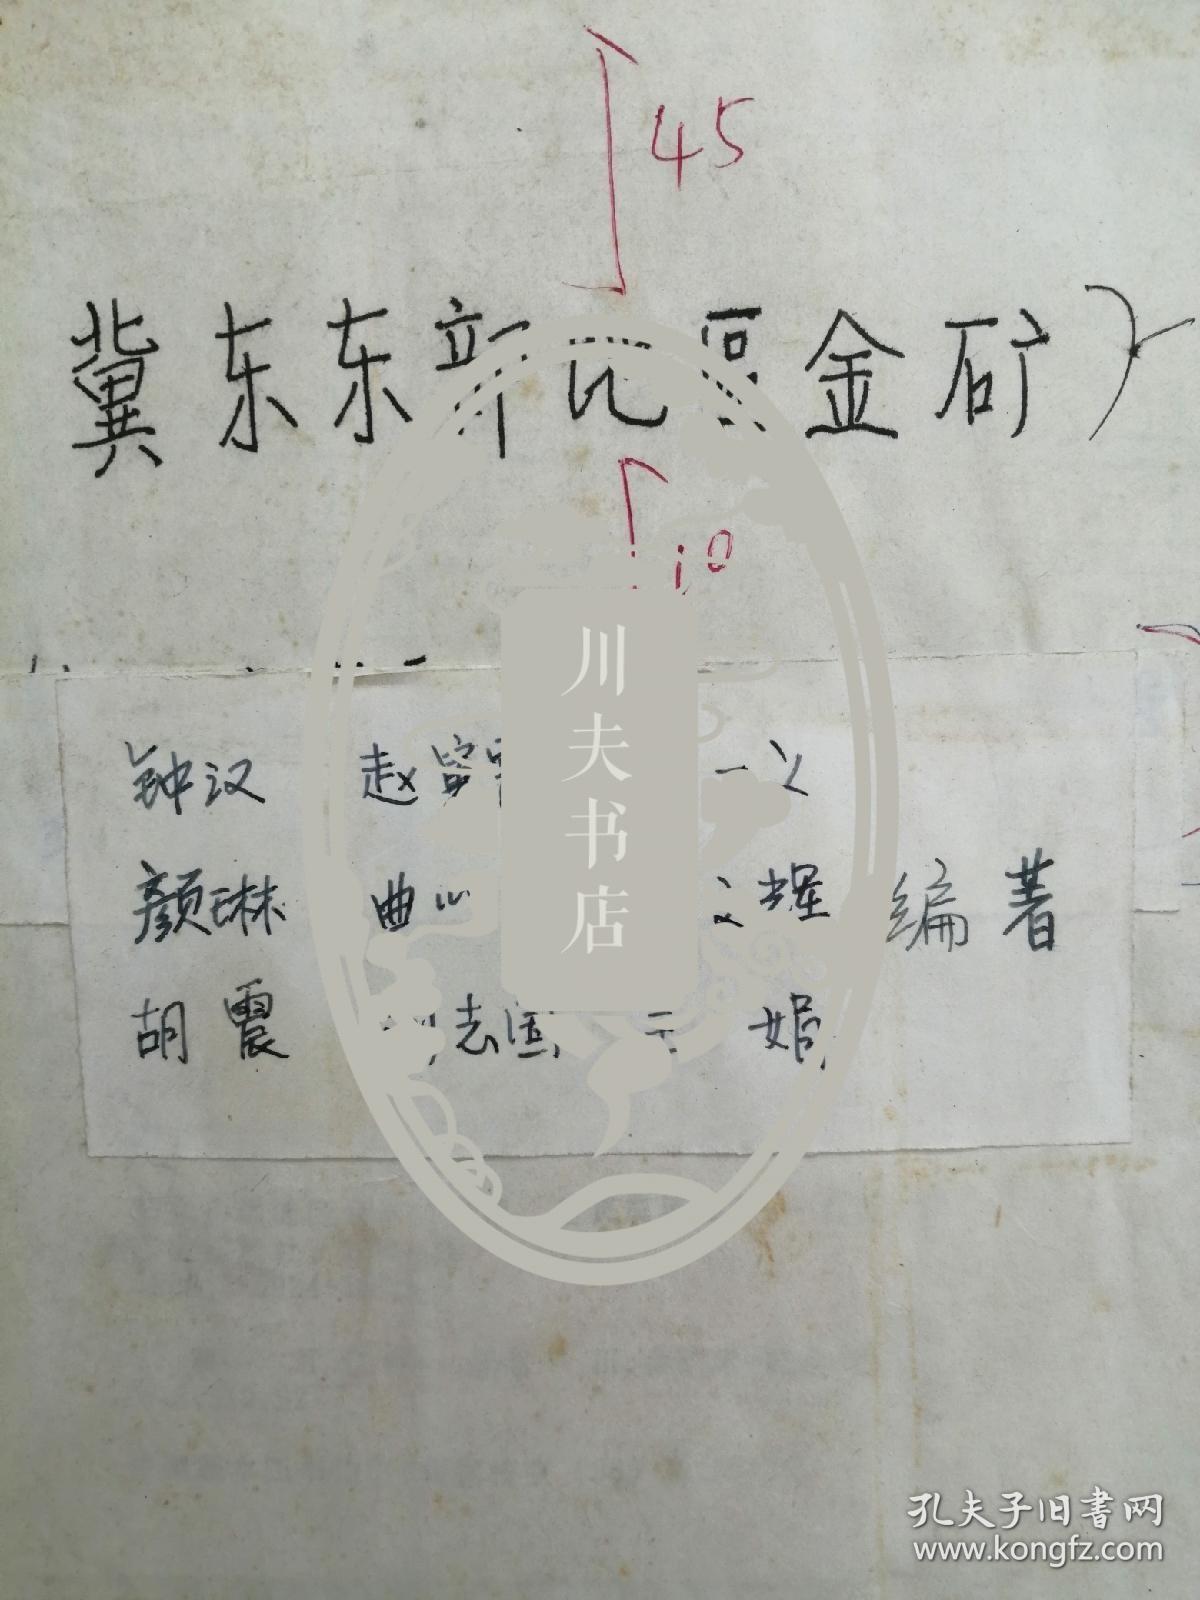 45
冀东东部地区金矿
10
钟汉 赵 一
颜琳 曲 辉 编著
胡震 志国 娟
川夫书店
孔夫子旧书网
www.kongfz.com